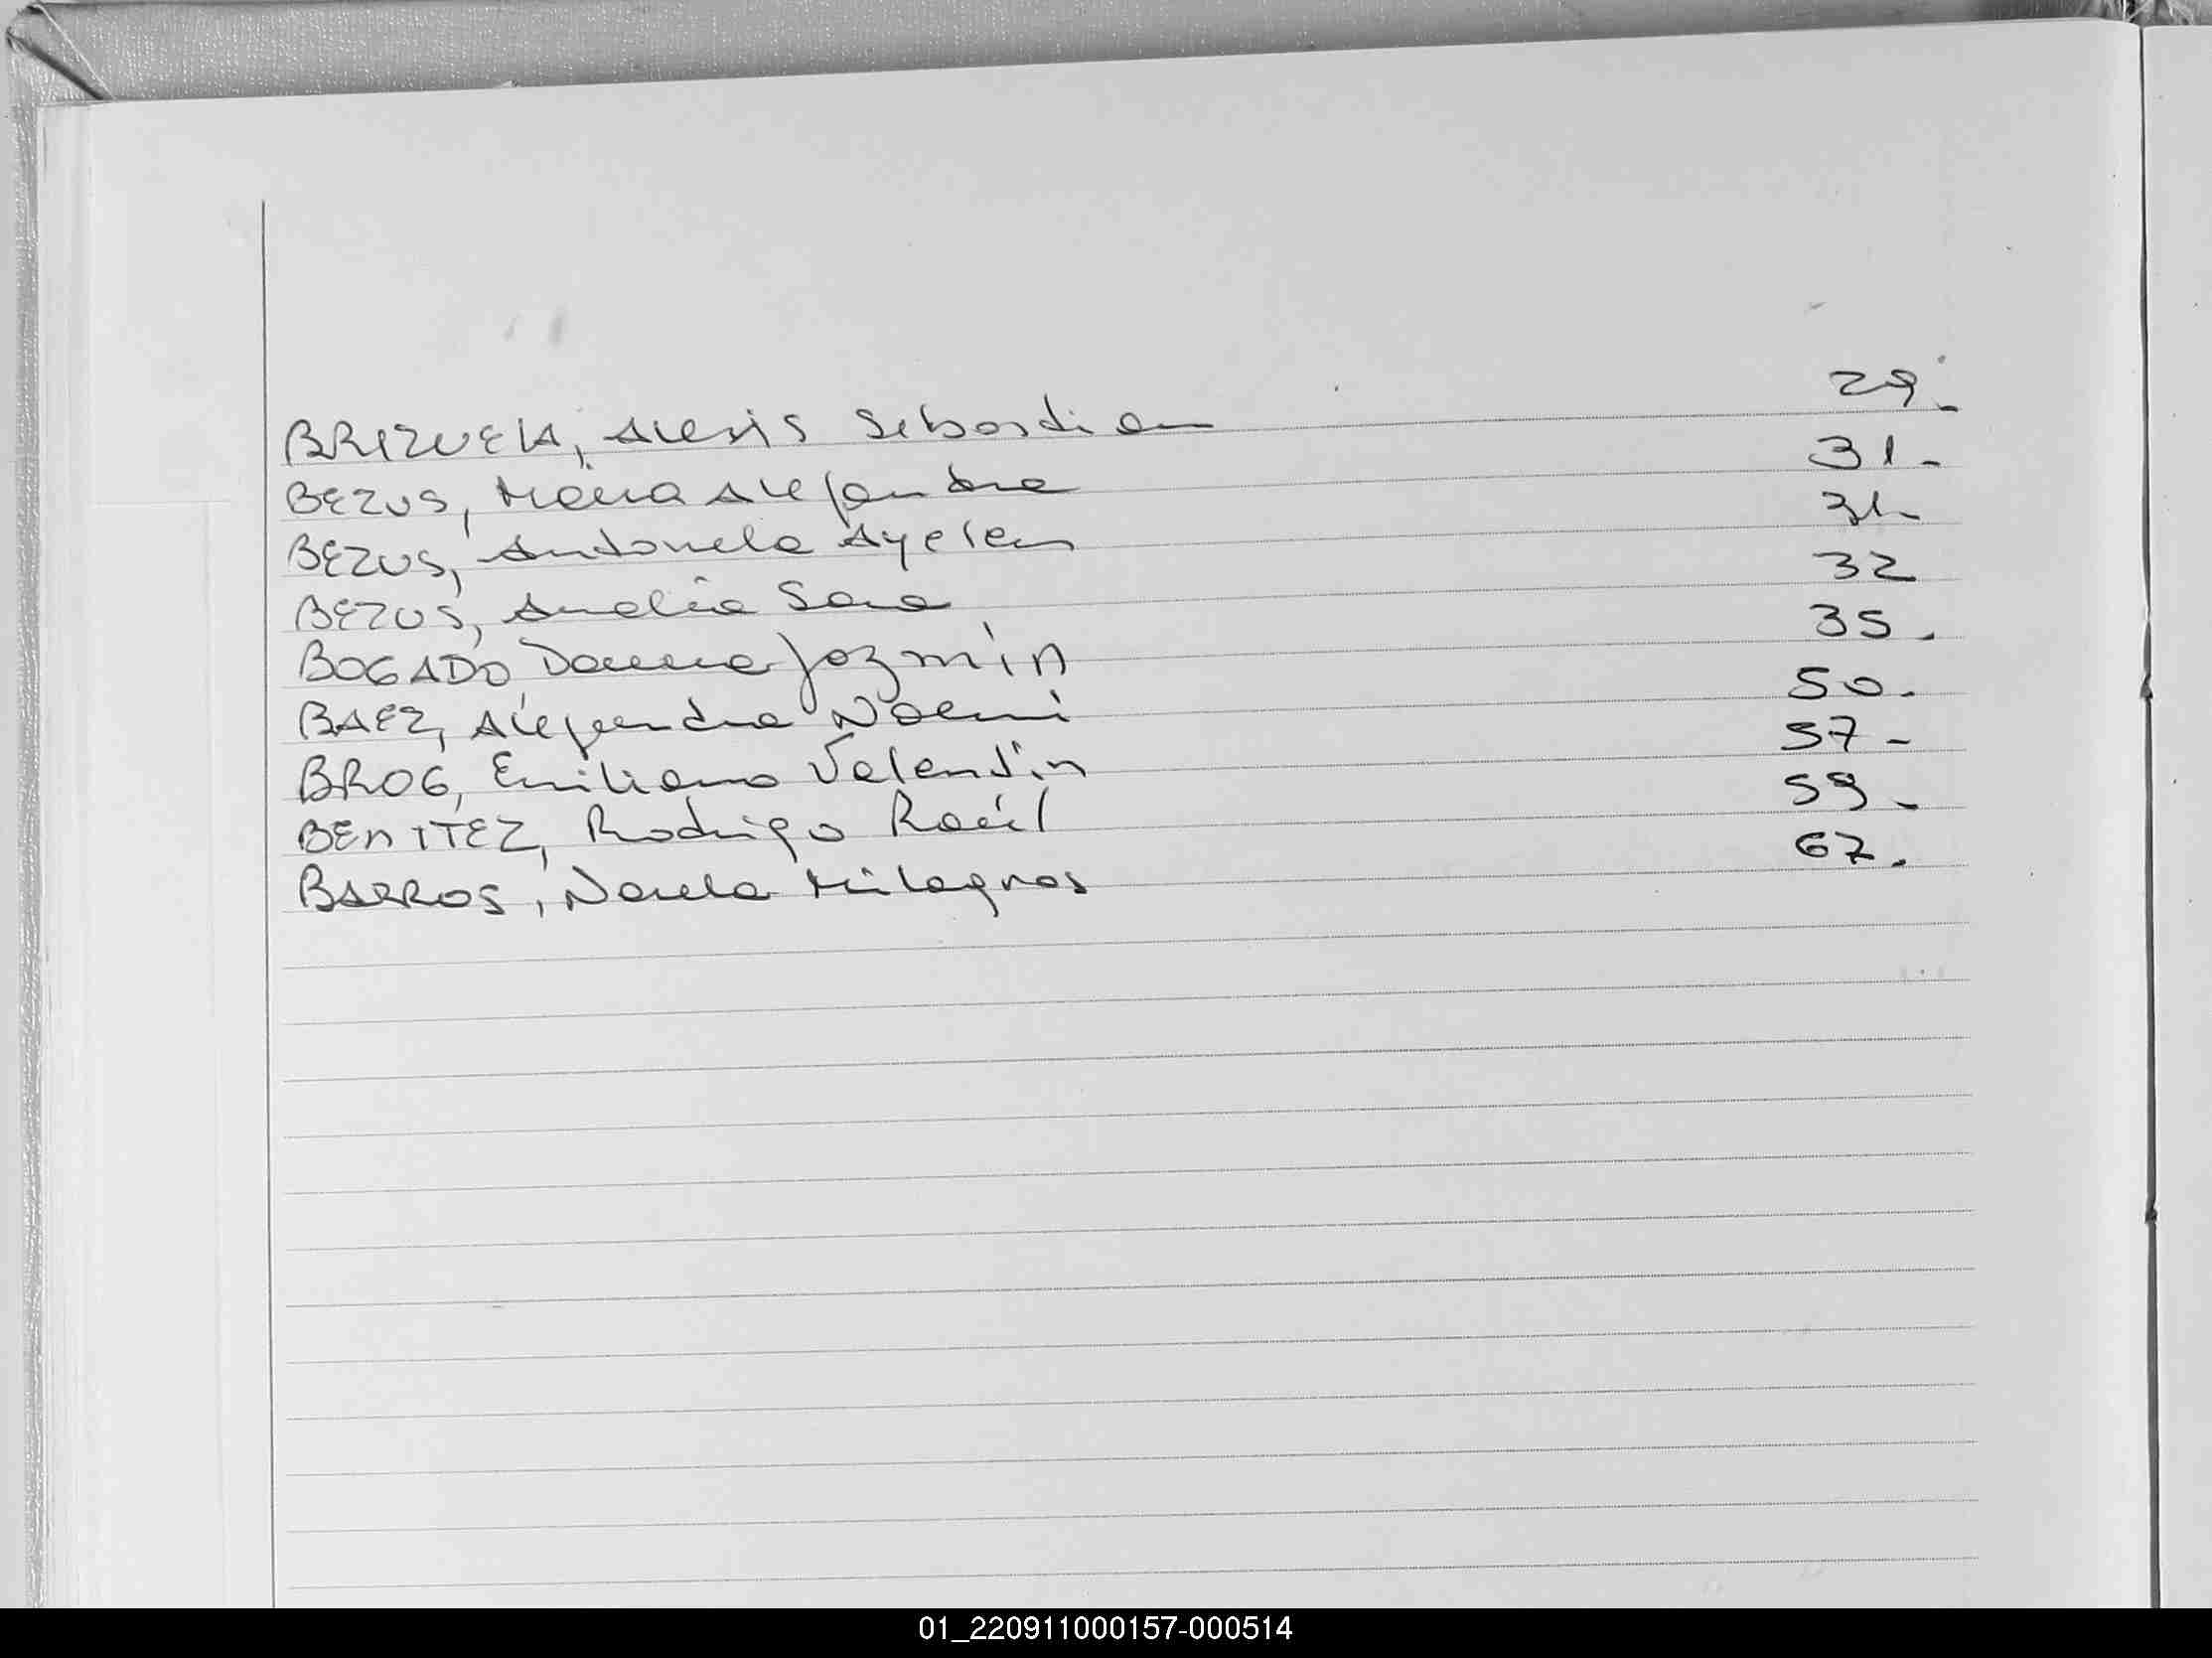 BRIZUELA, Alexis Sebastian 29-
BEZUS, María Alejandra 31-
BEZUS, Antonela Ayelen 31-
BEZUS, Analia Sara 32
BOGADO, Danna Jazmín 35.
BAEZ, Alejandra Noemí 50.
BROG, Emiliano Valentín 57-
BENITEZ, Rodrigo Raúl 59-
BARROS, Milagros 67.
01_220911000157-000514